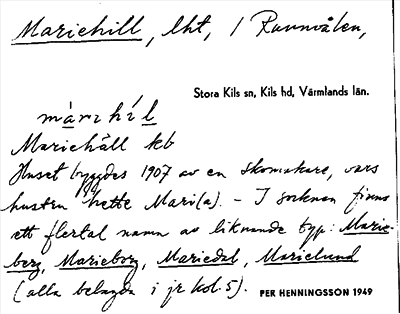 Mariehill, lht, / Runnvålen,
Stora Kils sn, Kils hd, Värmlands län.
màrıhíl
Mariehäll kb
Huset byggdes 1907 av en skomakare, vars
hustru hette Mari(a). – I socknen finns
ett flertal namn av liknande typ: Marie-
berg, Marieborg, Mariedal, Marielund
(alla belagda i jr kol. 5).
PER HENNINGSSON 1949